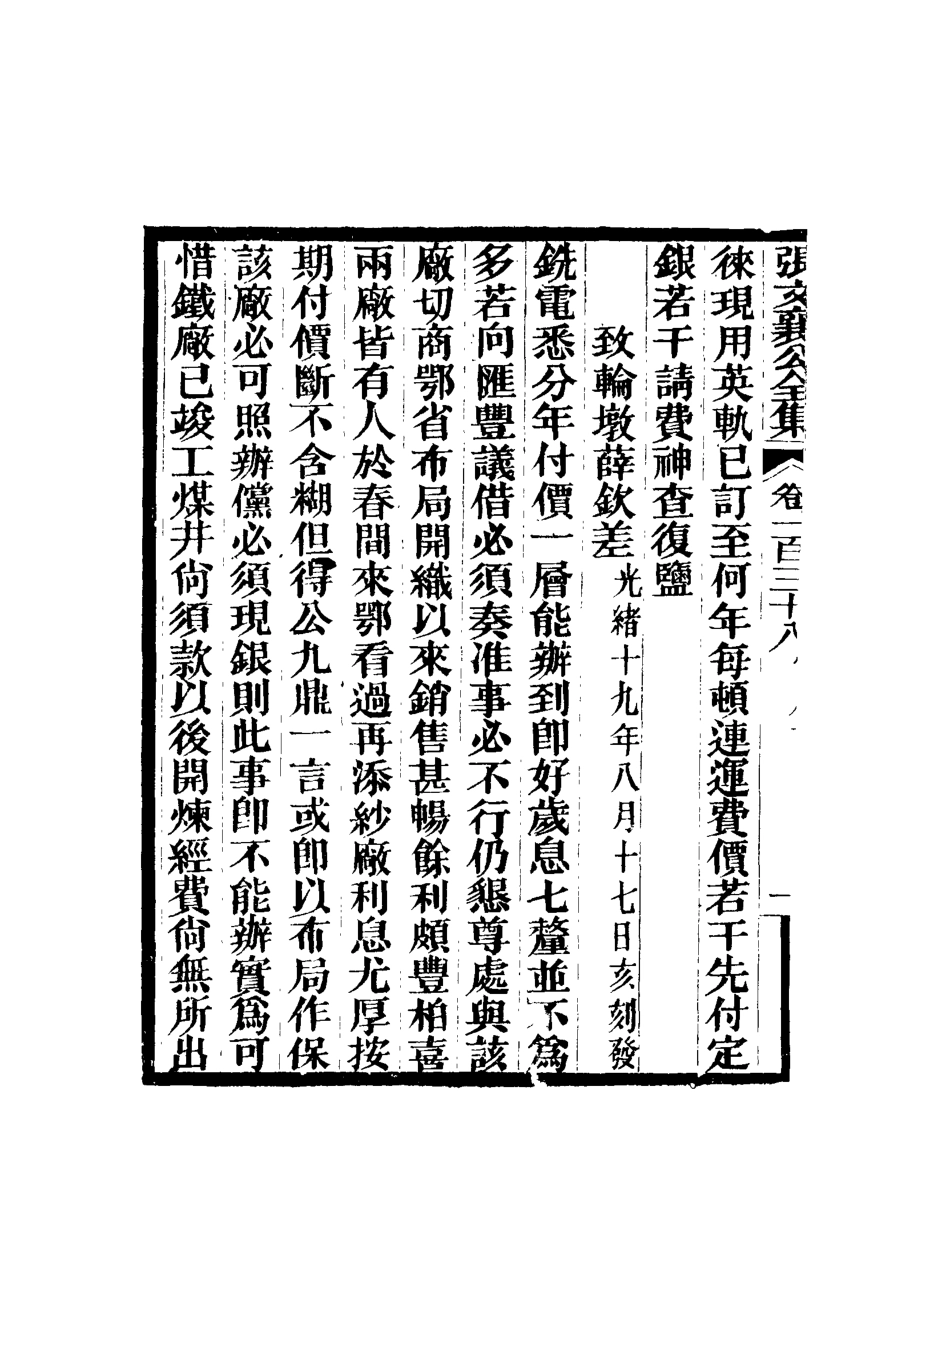 張文襄公全集 卷一百三十八 一
徠現用英軌已訂至何年每頓連運費價若干先付定
銀若干請費神查復鹽
致輪墩薛欽差 光緒十九年八月十七日亥刻發
銑電悉分年付價一層能辦到卽好歲息七釐並不爲
多若向匯豐議借必須奏准事必不行仍懇尊處與該
廠切商鄂省布局開織以來銷售甚暢餘利頗豐柏喜
兩廠皆有人於春間來鄂看過再添紗廠利息尤厚按
期付價斷不含糊但得公九鼎一言或卽以布局作保
該廠必可照辦儻必須現銀則此事卽不能辦實爲可
惜鐵廠已竣工煤井尙須款以後開煉經費尙無所出